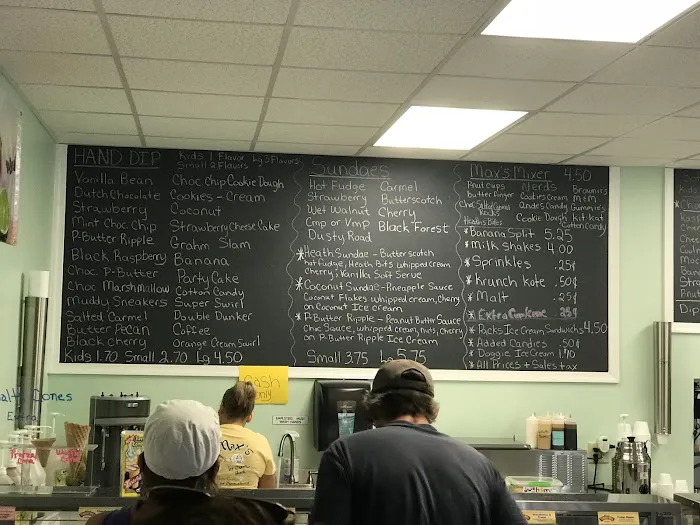 HAND DIP
Kids 1 Flavor Lg 3 Flavors
Small 2 Flavors
Vanilla Bean
Dutch Chocolate
Strawberry
Mint Choc Chip
P-Butter Ripple
Black Raspberry
Choc. P-Butter
Choc Marshmallow
Muddy Sneakers
Salted Carmel
Butter Pecan
Black Cherry
Choc Chip Cookie Dough
Cookies-Cream
Coconut
Strawberry Cheese Cake
Grahm Slam
Banana
Party Cake
Cotton Candy
Super Swirl
Double Dunker
Coffee
Orange Cream Swirl
Kids 1.70 Small 2.70 Lg 4.50
Sundaes
Hot Fudge Carmel
Strawberry Butterscotch
Wet Walnut Cherry
Cmp or VMP Black Forest
Dusty Road
*Heath Sundae - Butterscotch
Hot Fudge, Heath Bits whipped cream
Cherry, Vanilla Soft Serve
*Coconut Sundae-Pineapple Sauce
Coconut Flakes whipped cream, cherry
on Coconut Ice cream
*P-Butter Ripple - Peanut Butter Sauce
Choc Sauce, whipped cream, nuts, cherry
on P-Butter Ripple Ice Cream
Small 3.75 Lg 5.75
Max's Mixer 4.50
Pnut Cups Nerds Brownies
Butterfinger Cookies Cream M&M
Andes Candy Gummies
Rocks
Cookie Dough Kit Kat
Heath Bites
Cotton Candy
*Banana Split 5.25
*Milk shakes 4.00
*Sprinkles .25¢
*Krunch Kote .50¢
*Malt .25¢
*Extra Cup/Cone 35¢
*Packs Ice Cream Sandwichs 4.50
*Added Candies .50¢
*Doggie Ice Cream 1.70
*All Prices + Sales + tax
Cash
only
Max's
Cones